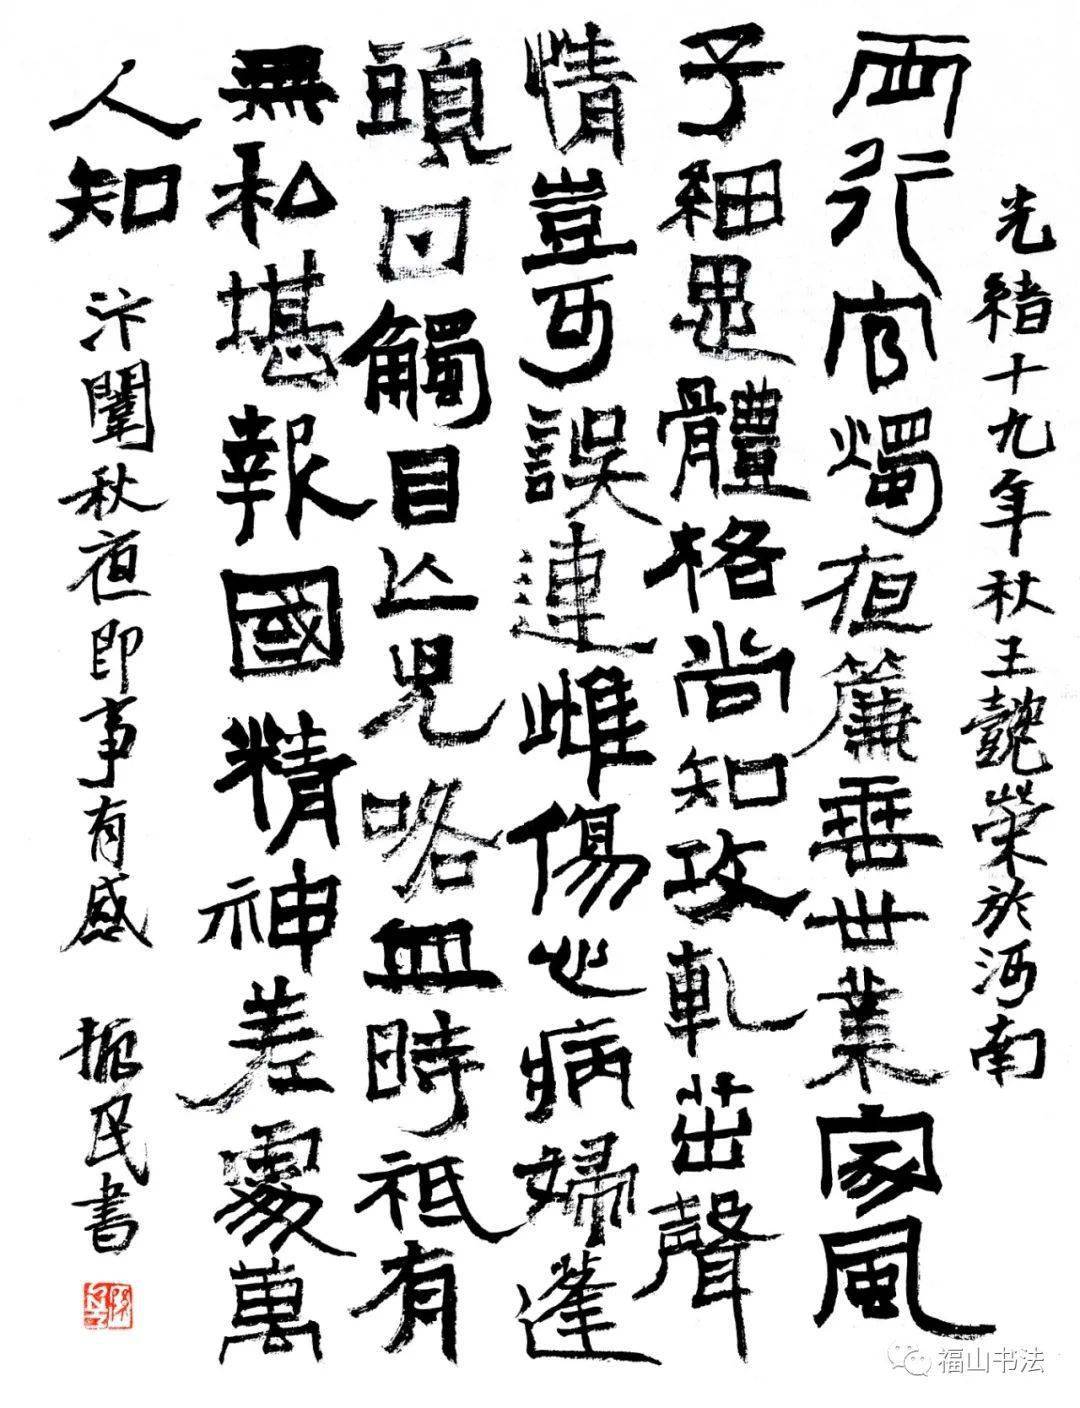 光緒十九年秋王懿榮於河南
兩行官燭夜簾垂世業家風
子細思體格尚知攻軋茁聲
情豈可誤連雌傷心病婦蓬
頭日觸目亡兒咯血時祗有
無私堪報國精神差處萬
人知 汴闈秋夜即事有感 振民書
福山书法